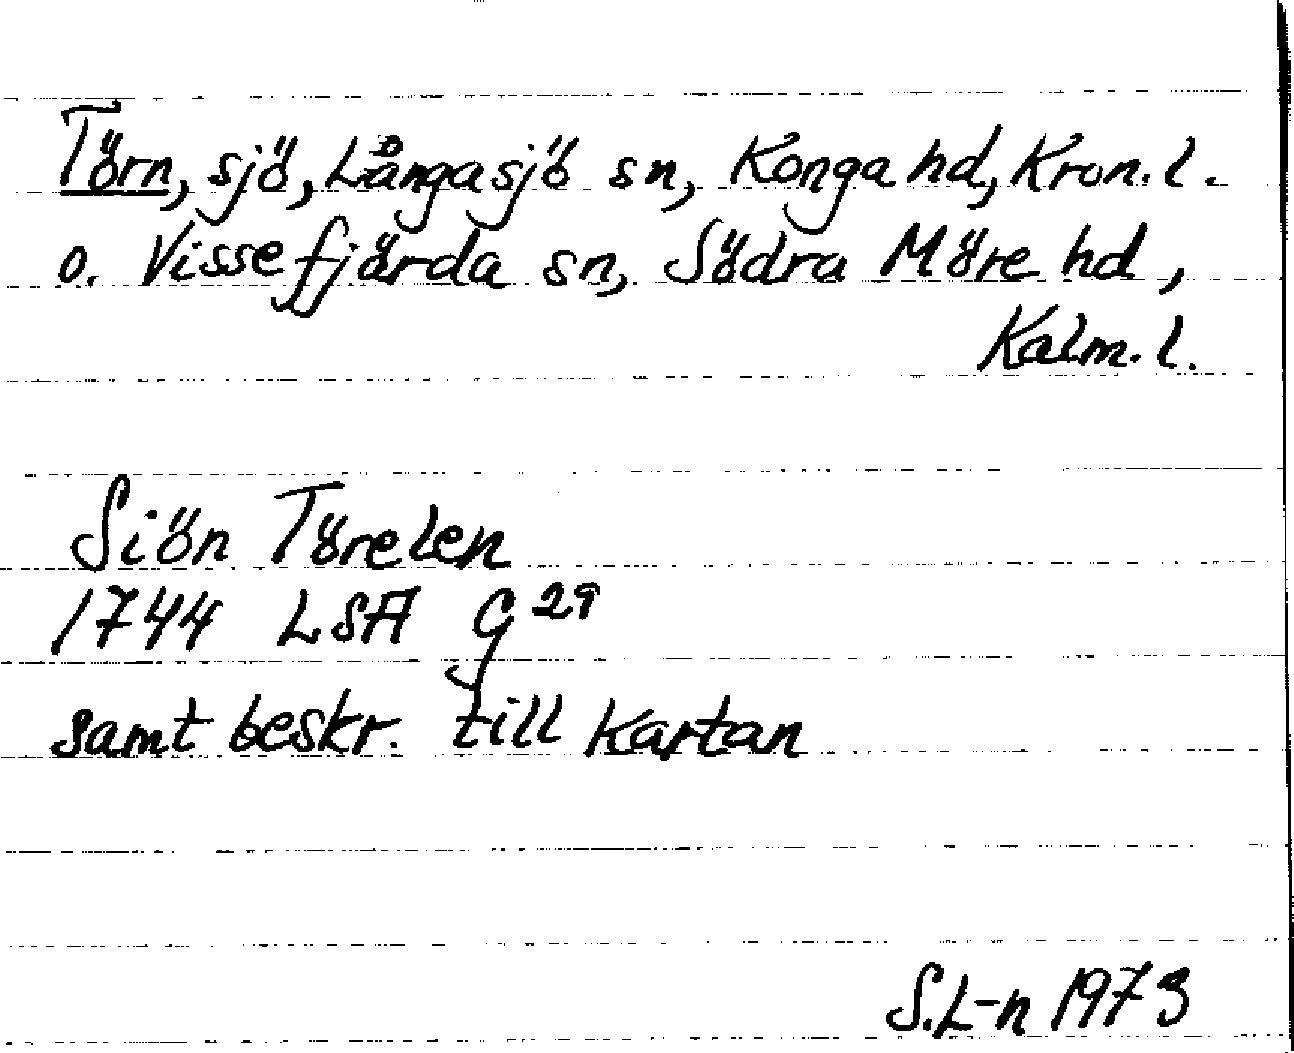 Törn, sjö, Långasjö sn, Konga hd, Kron. l.
o. Vissefjärda sn, Södra Möre hd,
Kalm. l.
Siön Törelen
1744 LSA G 29
samt beskr. till kartan
S.L-n 1973